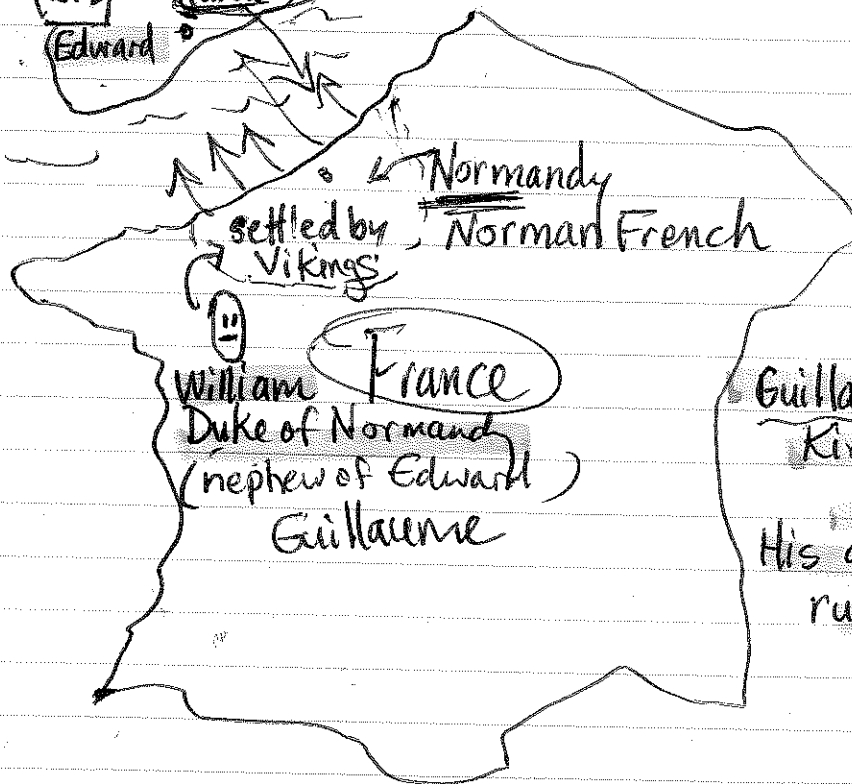 (Edward
Normandy
settled by , Norman French
Vikings
William France
Duke of Normandy
(nephew of Edward)
Guillaume
Guilla
Kin
His
ru